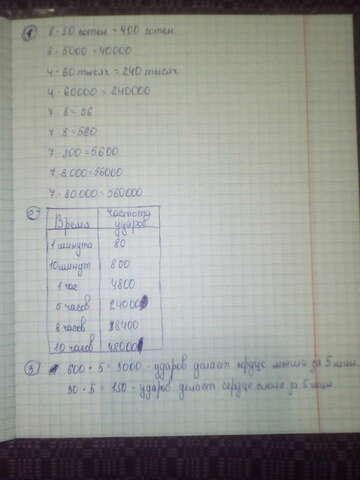 ① 8 · 50 сотен = 400 сотен
8 · 5000 = 40000
4 · 60 тысяч = 240 тысяч
4 · 60000 = 240000
7 · 8 = 56
7 · 8 = 560
7 · 800 = 5600
7 · 8 000 = 56000
7 · 80 000 = 560000
② Время Частота ударов
1 минута 80
10 минут 800
1 час 4800
5 часов 24000
8 часов 38400
10 часов 48000
③ 600 · 5 = 3000 - ударов делает сердце мыши за 5 мин.
30 · 5 = 150 - ударов делает сердце слона за 5 мин.